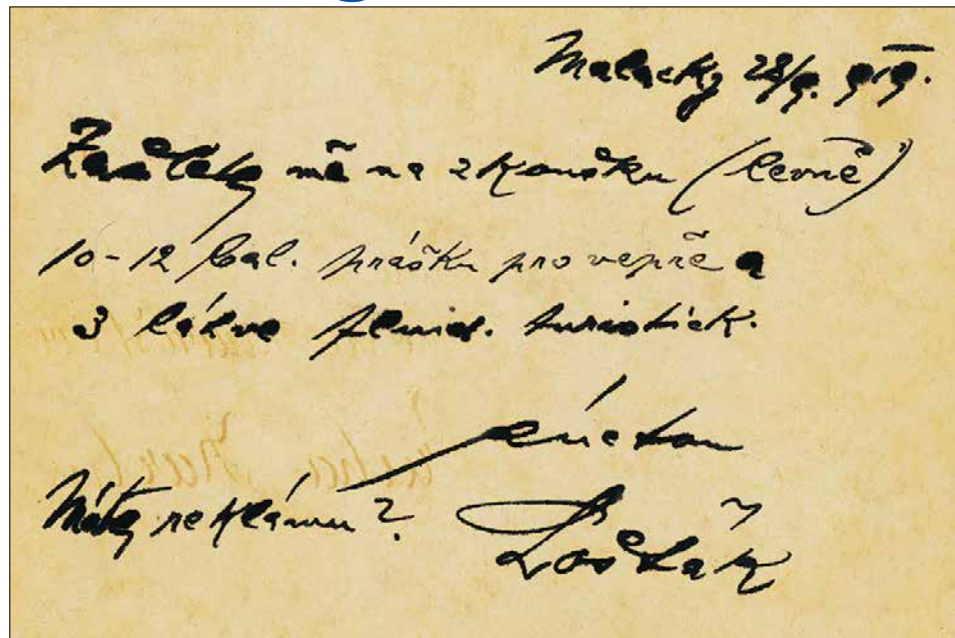 Malacky 28/9. 919.
Zašlete mě na zkoušku (levně)
10-12 bal. prášku pro vepře a
3 láhve fluid. turistick.
s úctou
Máte reklamu? Košťák